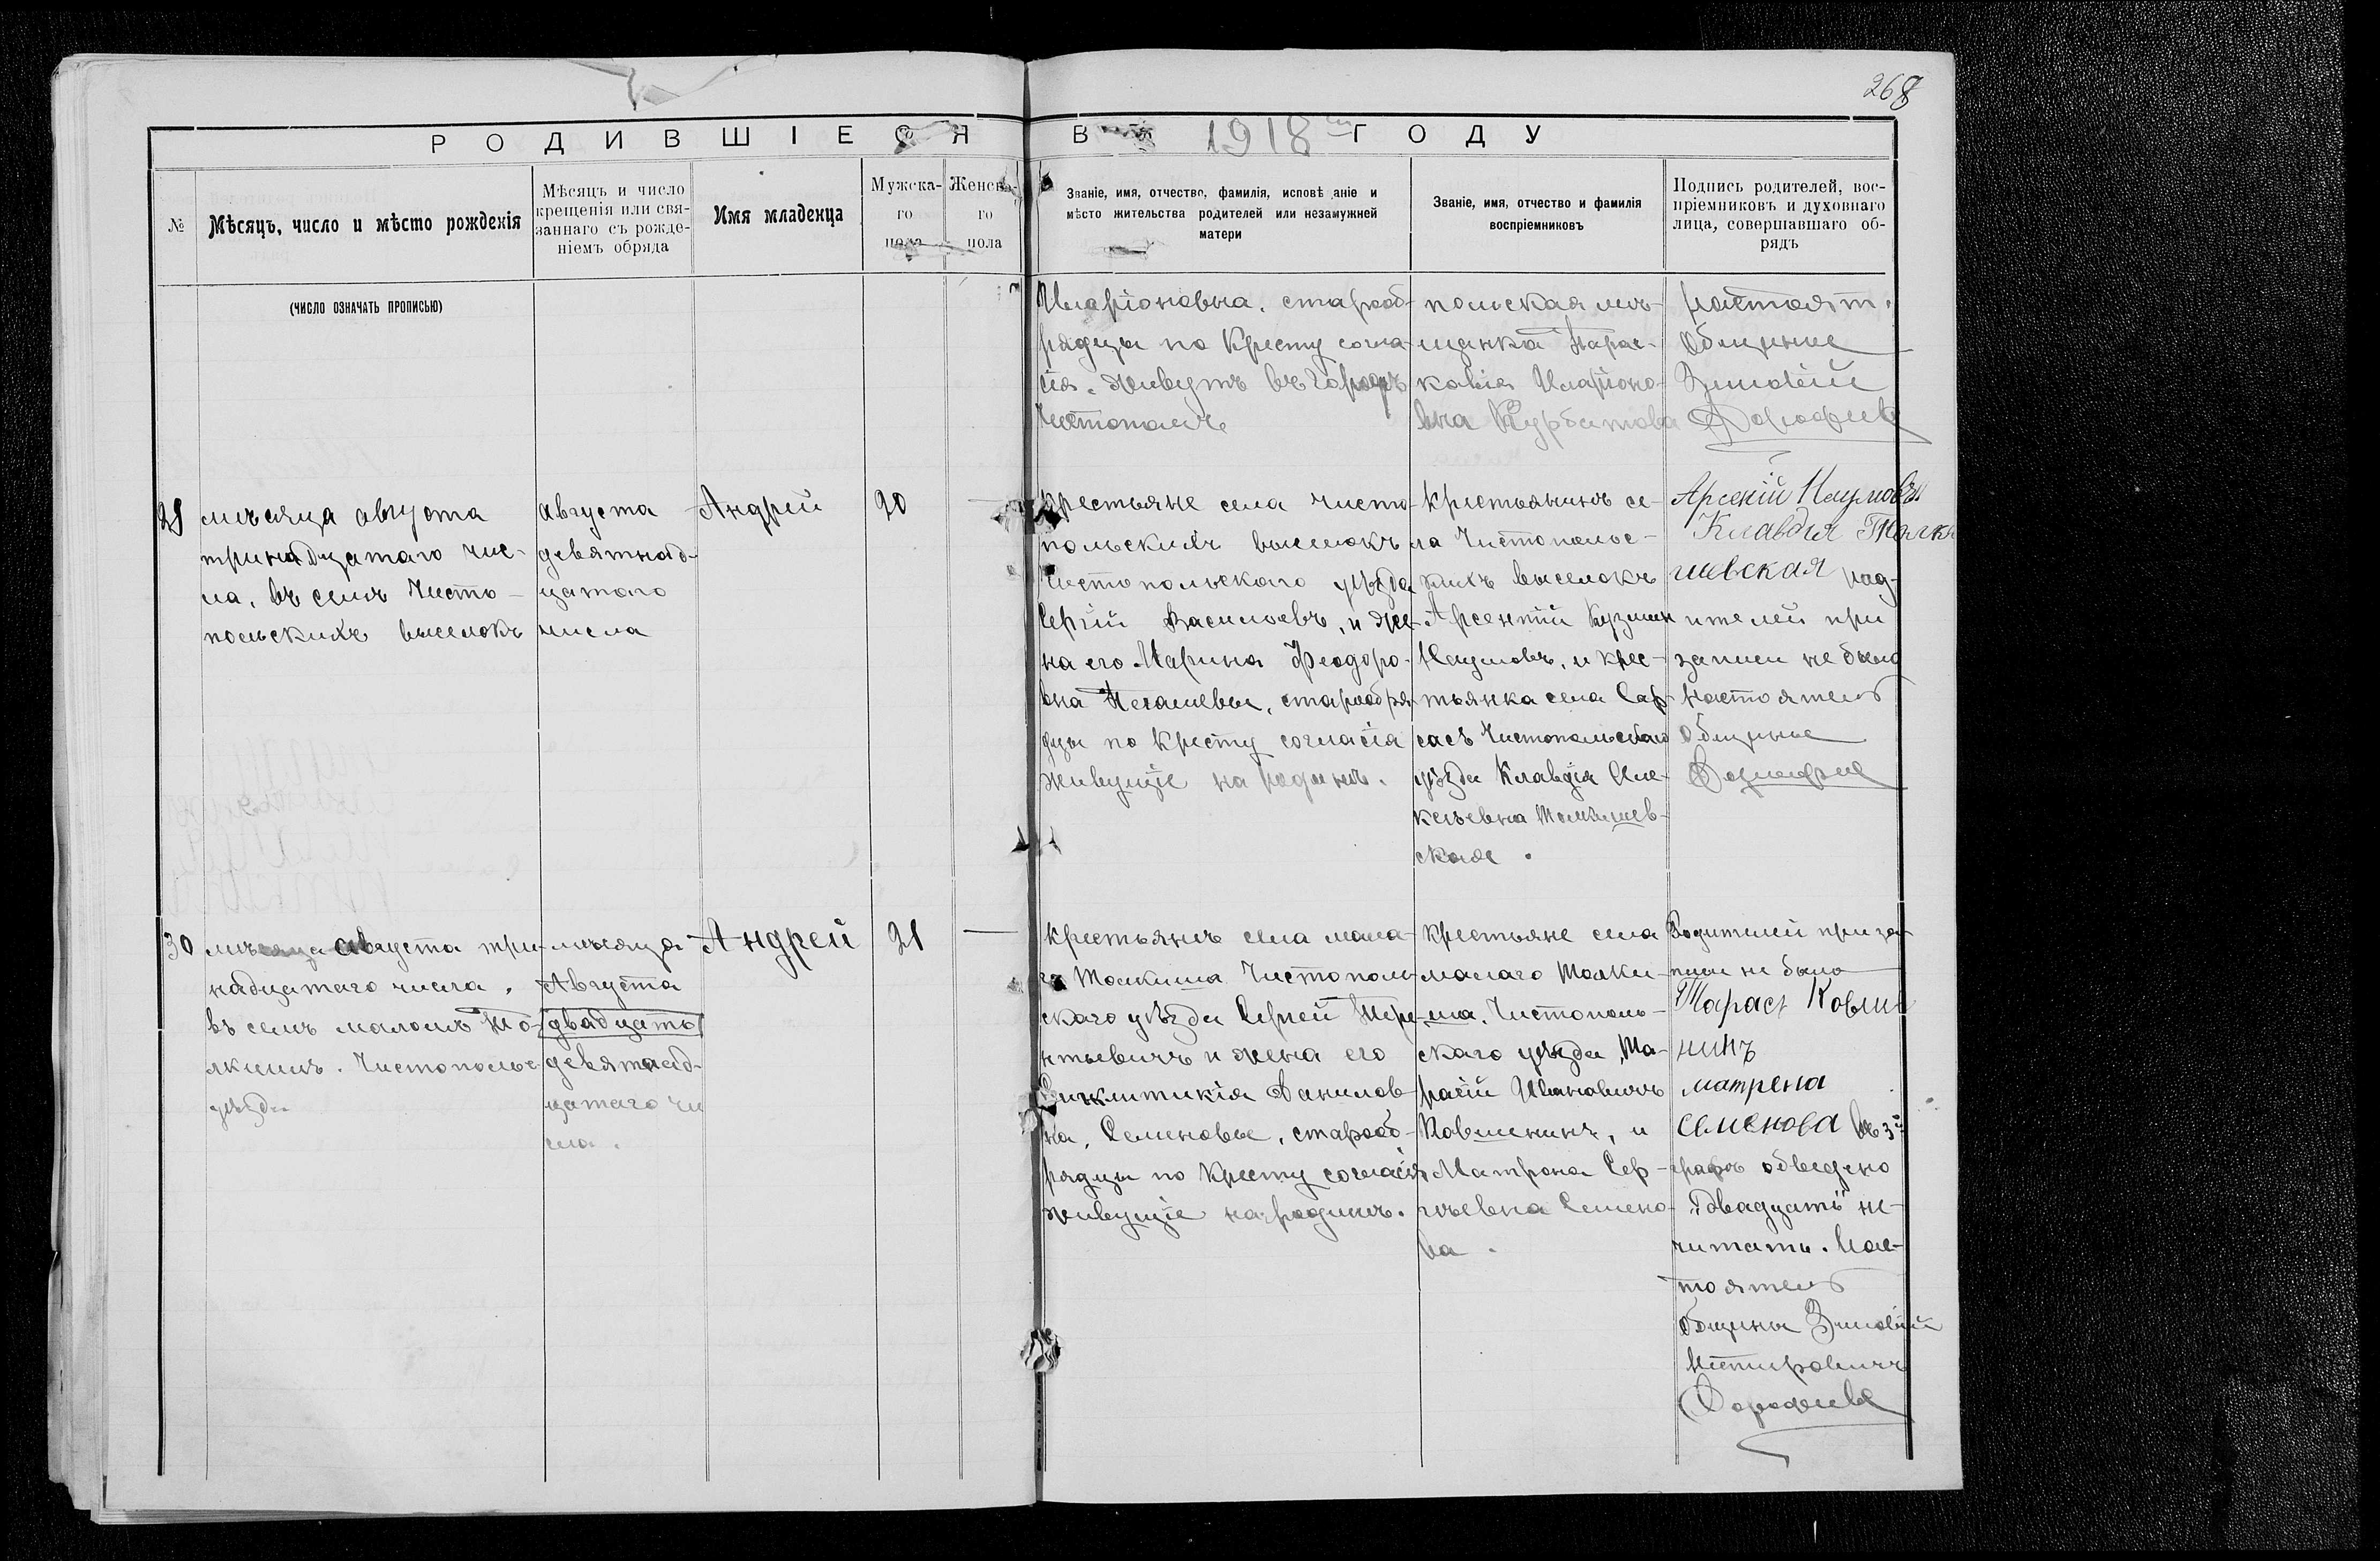 268
РОДИВШІЕСЯ В 1918 ГОДУ
№
Мѣсяцъ, число и мѣсто рожденія
Мѣсяцъ и число
крещенія или свя-
заннаго съ рожде-
ніемъ обряда
Имя младенца
Мужска-
го
пола
Женска-
го
пола
Званіе, имя, отчество, фамилія, исповѣ аніе и
мѣсто жительства родителей или незамужней
матери
Званіе, имя, отчество и фамилія
воспріемниковъ
Подпись родителей, вос-
пріемниковъ и духовнаго
лица, совершавшаго об-
рядъ
(ЧИСЛО ОЗНАЧАТЬ ПРОПИСЬЮ)
Иларіоновна. старооб-
рядцы по Кресту согла-
сія. живутъ въ городѣ
Чистополѣ
польская мѣ-
щанка Парас-
кавія Иларіоно-
вна Курбатова
настоят.
Общины
Зиновій
Дорофеев
29
мѣсяца августа
тринадцатаго чис-
ла, въ селѣ Чисто-
польскихъ выселокъ
августа
девятнад-
цатаго
числа
Андрей
20
—
крестьяне села чисто-
польскихъ выселокъ
Чистопольского уѣзда
Сергій Васильевъ, и же-
на его Марина Феодоро-
вна старообря-
дцы по Кресту согласія
живущіе на родинѣ.
Крестьянинъ се-
ла Чистопольс-
кихъ выселокъ
Арсентій Кузмин
Наумовъ, и крес-
тьянка села Сар-
сасъ Чистопольскаго
уѣзда Клавдія Але-
ксѣевна Толкишев-
ская.
Арсеній Наумовъ
Клавдія Толки
шевская род-
ителей при
записи не было
настоятель
Общины
Дорофеев
30
мѣсяца августа три-
надцатаго числа,
въ селѣ маломъ То-
лкишѣ. Чистопольс
уѣзда
мѣсяца
Августа
двадцать
девятнад-
цатаго чи
сла.
Андрей
21
—
крестьянъ села мала-
го Толкиша Чистополь-
скаго уѣзда Сергей Тере-
нтьевичъ и жена его
Синклитикія Данилов-
на, Семеновы, старооб-
рядцы по Кресту согласія
живущіе на родинѣ.
крестьяне села
малаго Толки-
ша, Чистополь-
скаго уѣзда, Та-
расій Ивановичъ
Ковшенинъ, и
Матрона Сер-
гѣевна Семено-
ва.
Родителей при за-
писи не было
Тарасъ Ковши
нинъ
матрена
семенова въ 3й
графѣ обведено
"двадцать" не-
читать. Нас-
тоятель
Общины Зиновій
Дорофеевъ